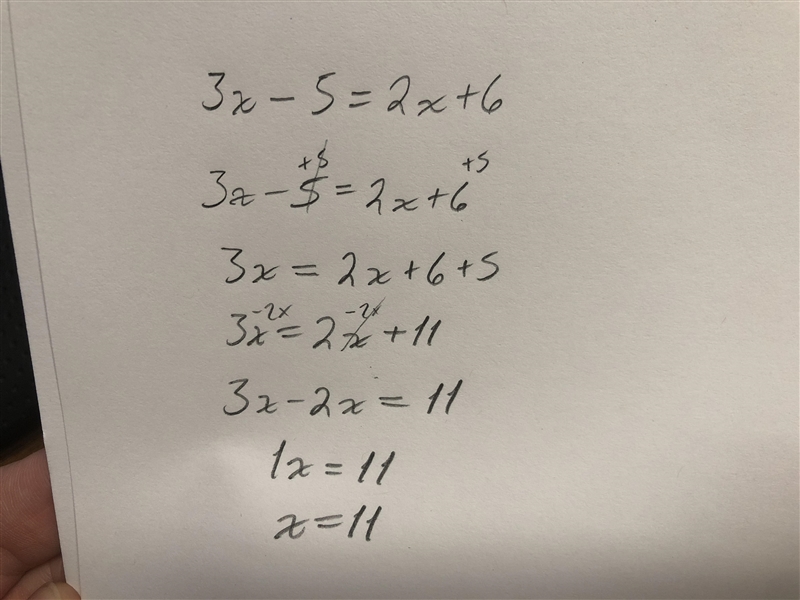 3x - 5 = 2x + 6
3x - 5 +5 = 2x + 6 +5
3x = 2x + 6 + 5
3x -2x = 2x -2x + 11
3x - 2x = 11
1x = 11
x = 11